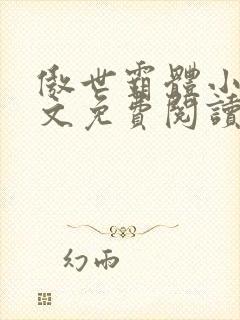 傲世霸體小
文免費閱讀
幻雨